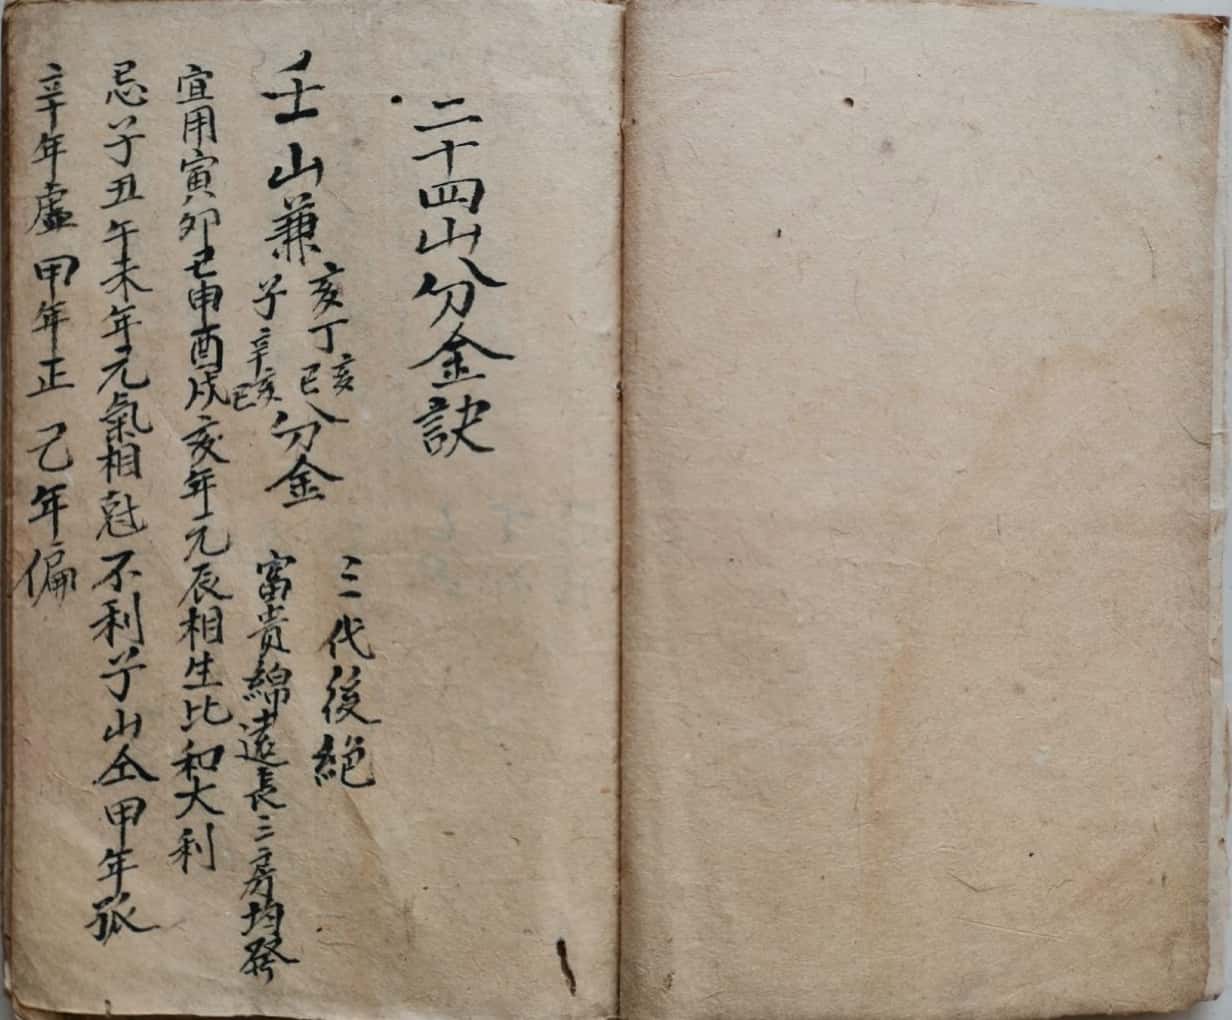 二十四山分金訣
壬山兼亥丁亥巳分金 三代後絕
子辛亥巳 富貴綿遠長三房均發
宜用寅卯巳申酉戌亥年元辰相生比和大利
忌子丑午未年元氣相尅不利子山仝甲年孤
辛年虛甲年正己年偏